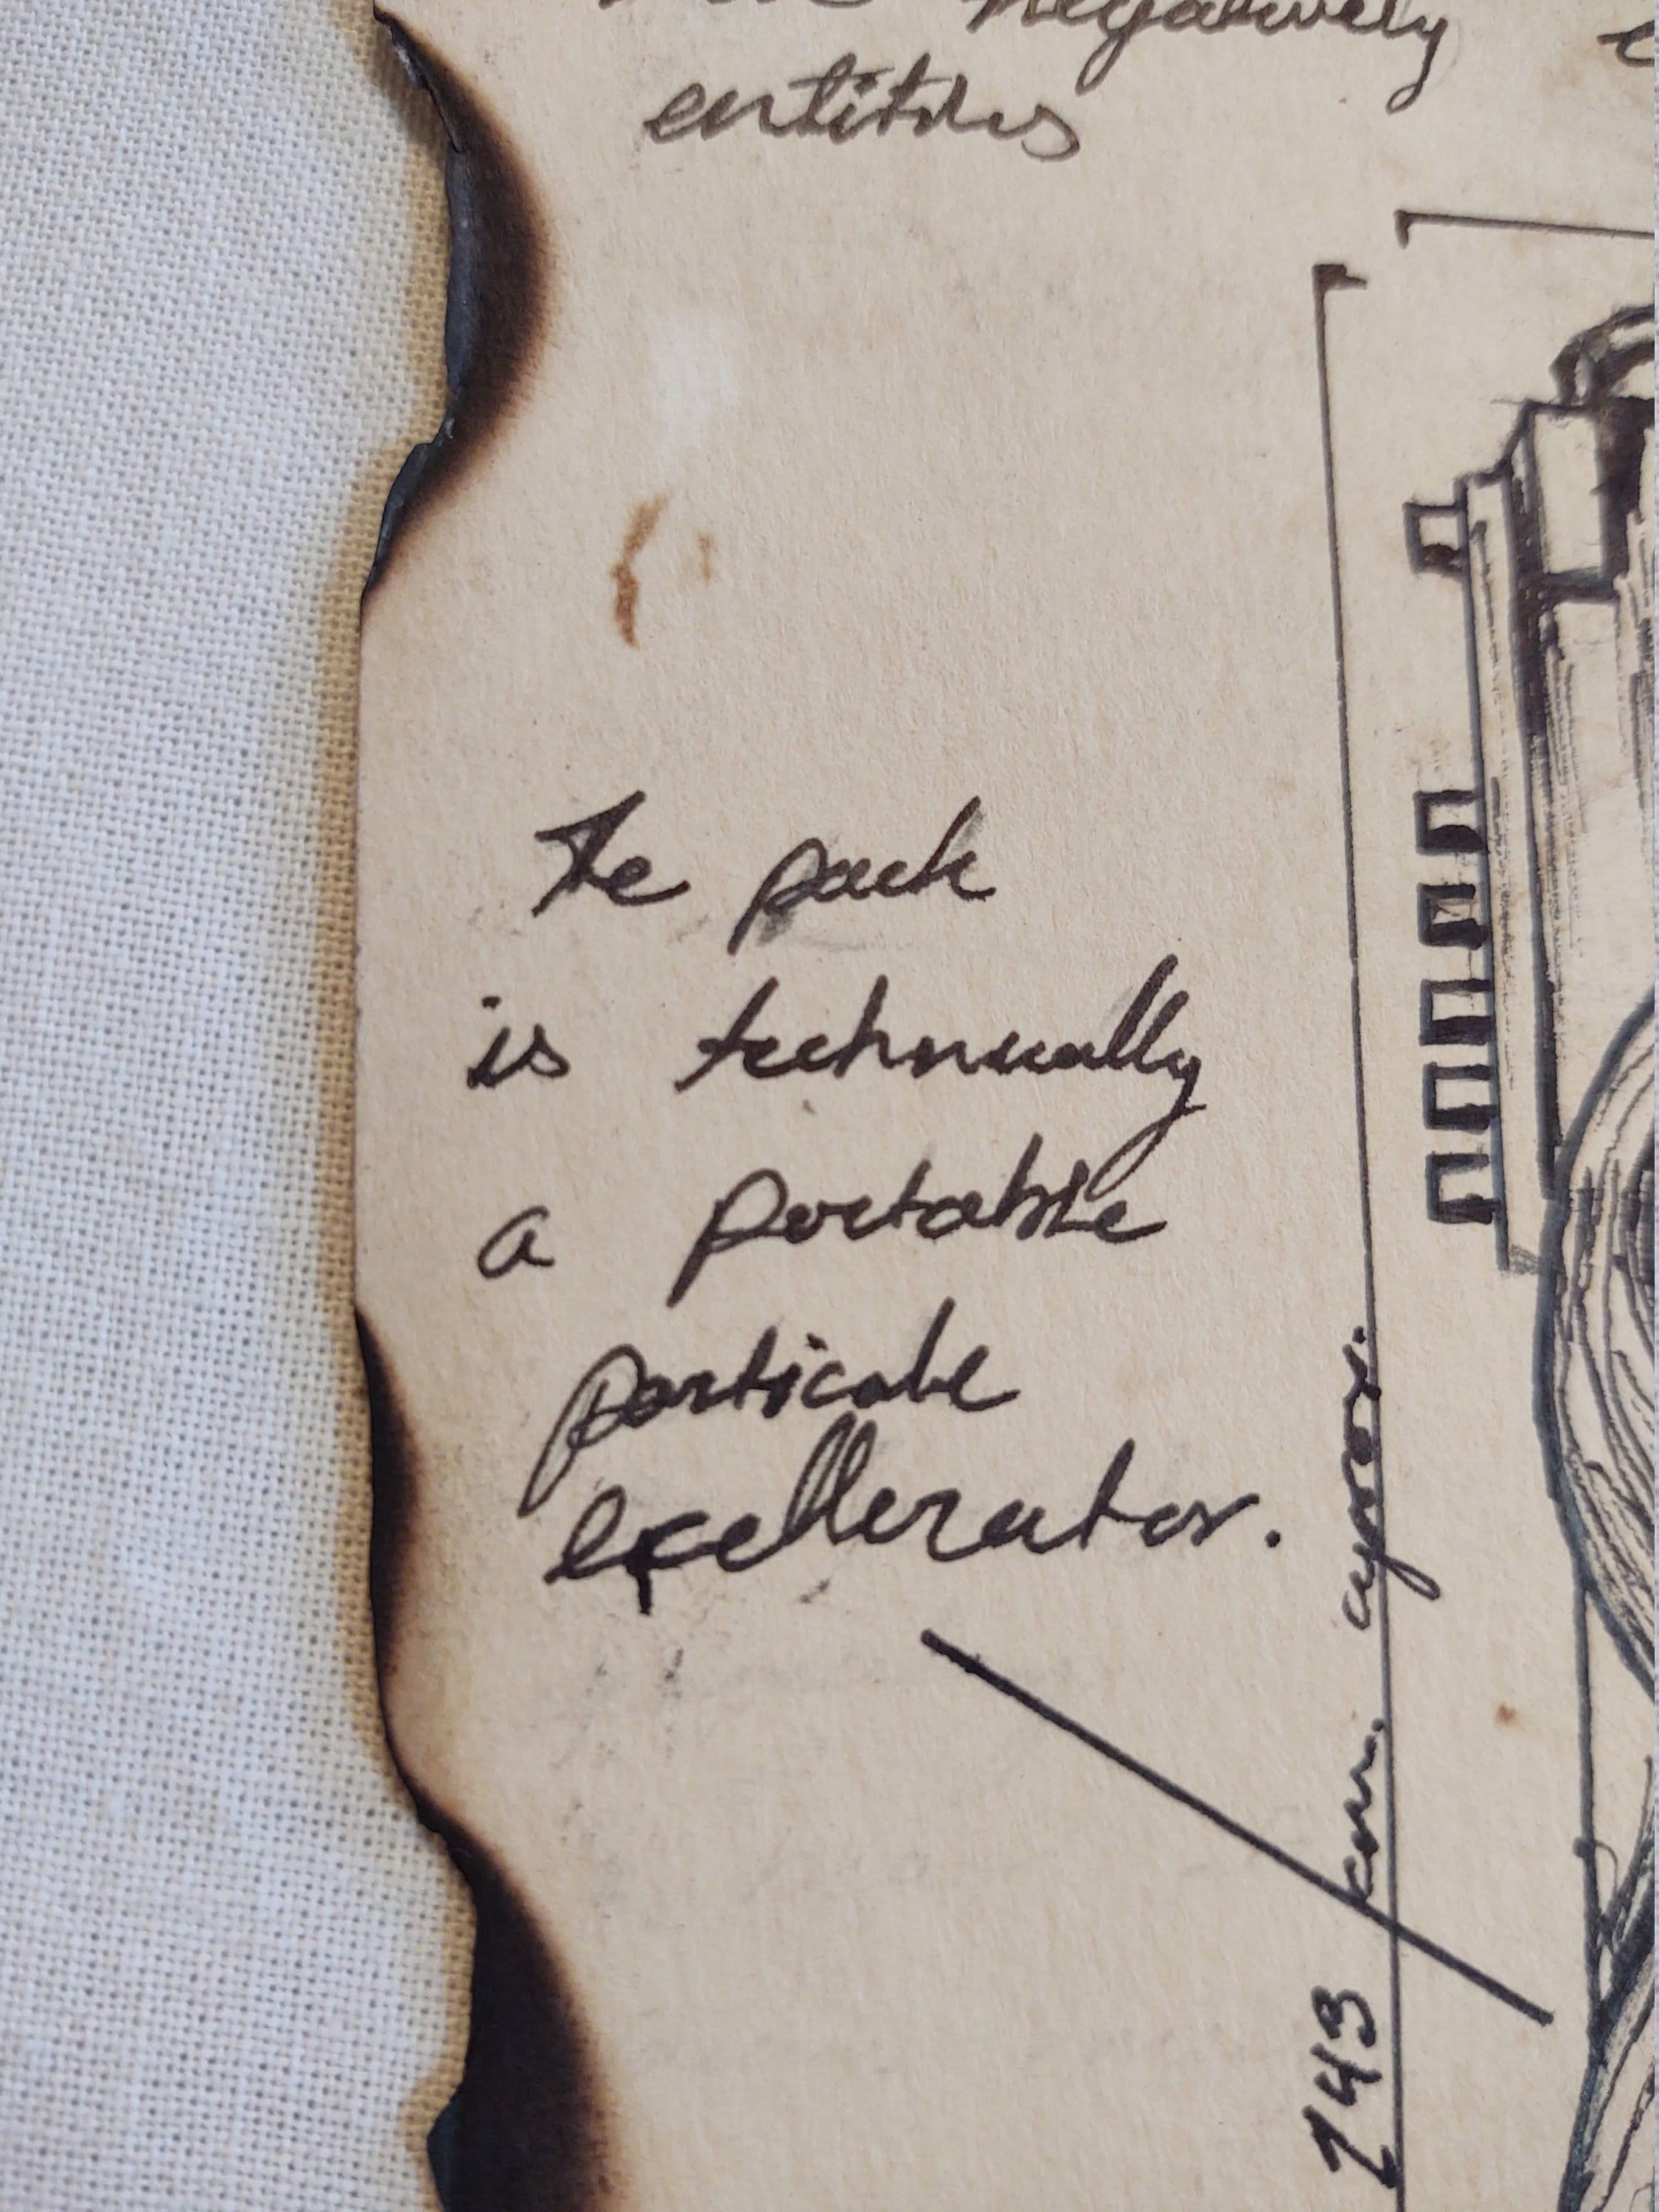 negatively
entities
The pack
is technically
a portable
particale
excellerator.
143 cm. aprox.